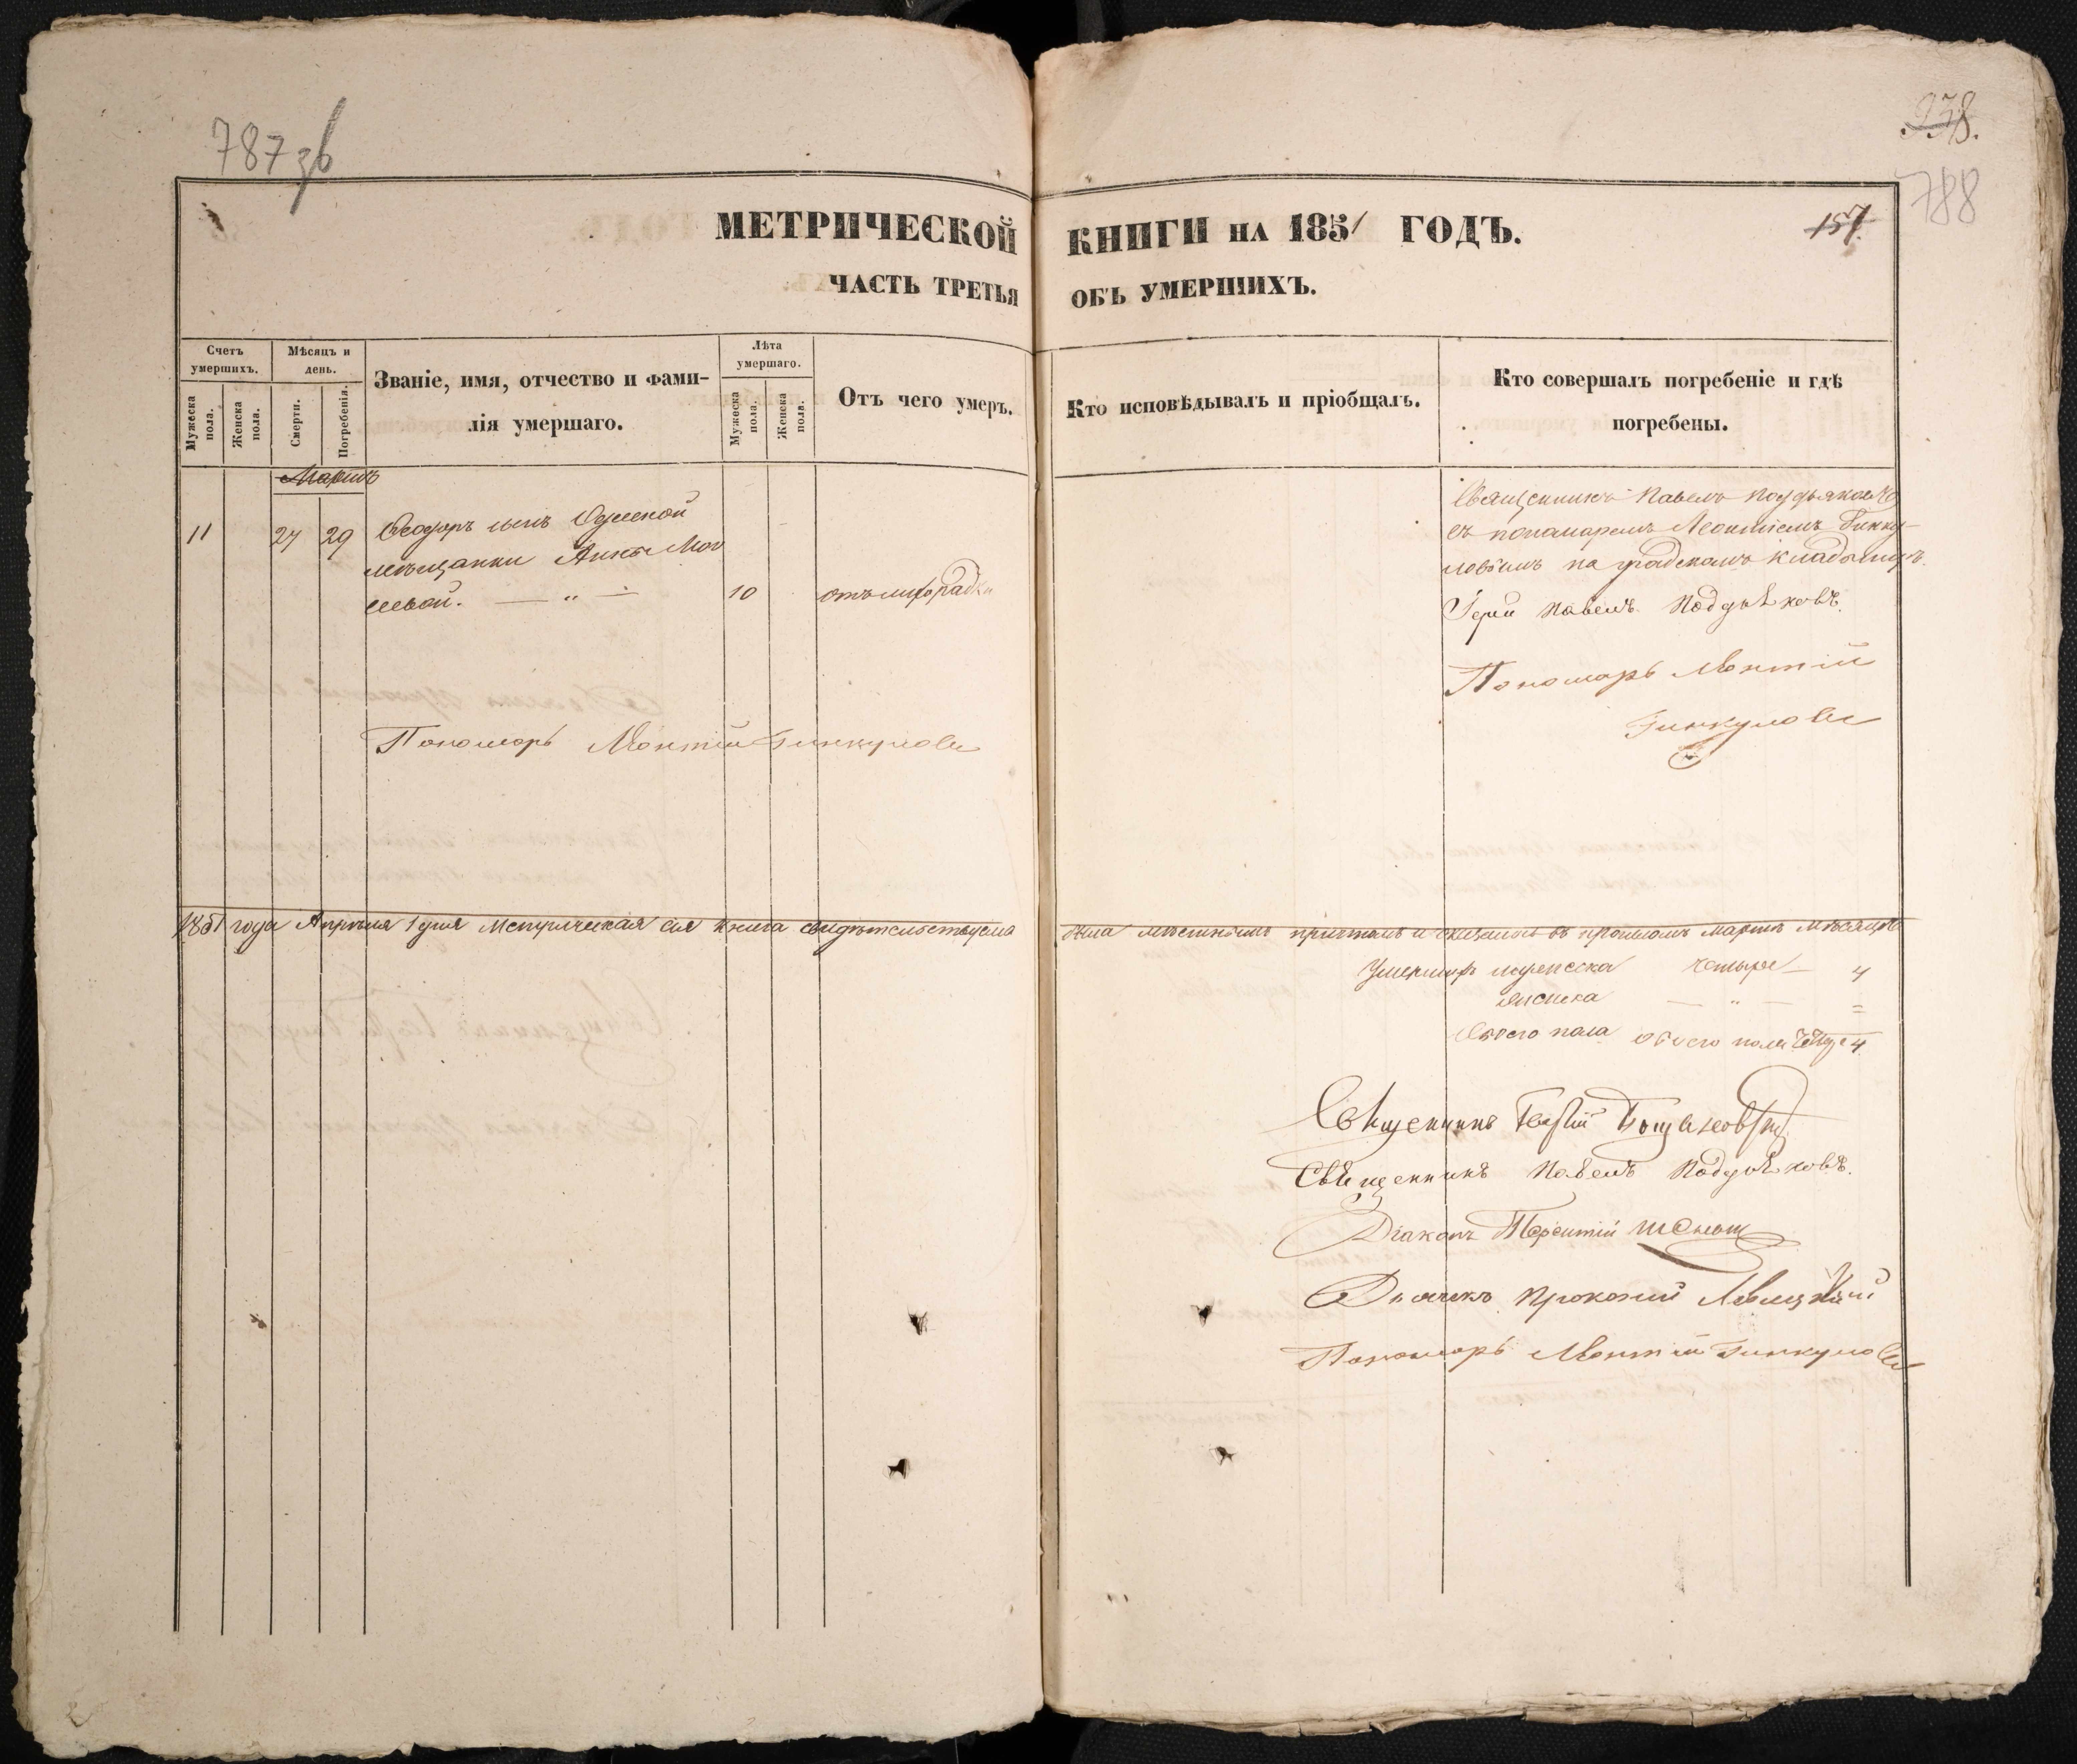 787 зв
938.
788
157
МЕТРИЧЕСКОЙ КНИГИ НА 1851 ГОДЪ.
ЧАСТЬ ТРЕТЬЯ ОБЪ УМЕРШИХЪ.
Счетъ умершихъ.
Мужеска пола.
Женска пола.
Мѣсяцъ и день.
Смерти.
Погребенія.
Званіе, имя, отчество и фами-
лія умершаго.
Лѣта умершаго.
Мужеска пола.
Женска пола.
Отъ чего умеръ.
Кто исповѣдывалъ и пріобщалъ.
Кто совершалъ погребеніе и гдѣ
погребены.
Мартъ
11 27 29 Ѳеодоръ сынъ Одеской
мѣщанки Анны
10 отъ лихорадки
Священникъ Павелъ
съ пономаремъ Леонтіемъ Гинку-
ловымъ на градскомъ кладбищѣ.
Іерей Павелъ Поддьяковъ.
Пономарь Леонтій
Гинкулов
Пономарь Леонтій Гинкулов
1851 года Апрѣля 1 дня Метрическая сія книга свидѣтельствуема
была мѣстнымъ причтомъ и въ прошломъ Мартѣ мѣсяцѣ
Умершихъ мужеска четыре — 4
женска — " — =
Обоего пола обоего пола 4
Священникъ
Священникъ Павелъ Поддьяковъ.
Діаконъ Терентій
Дьячекъ Прокопий Левицкий
Пономарь Леонтій Гинкулов